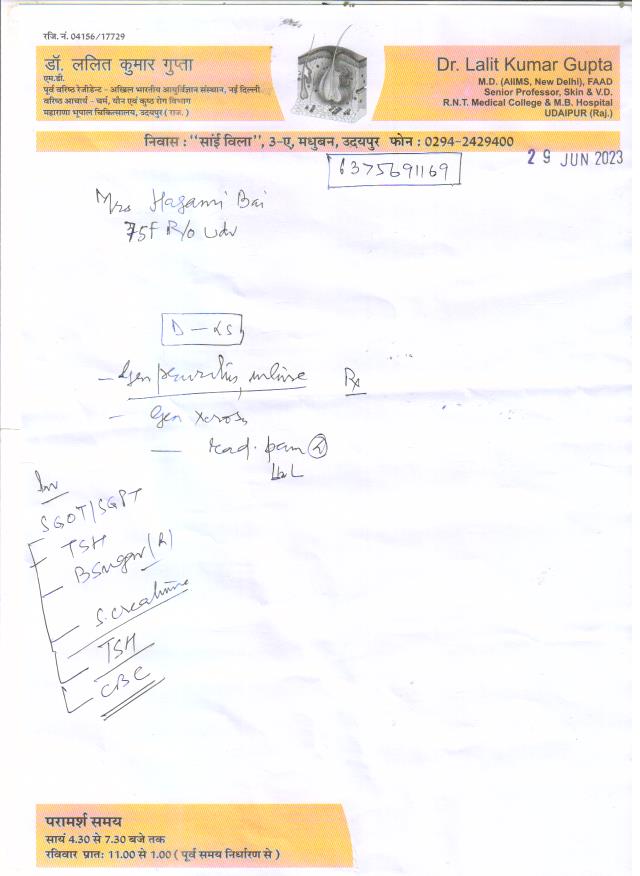 रजि. नं. 04156/17729
डॉ. ललित कुमार गुप्ता
एम.डी.
पूर्व वरिष्ठ रेजीडेन्ट - अखिल भारतीय आयुर्विज्ञान संस्थान, नई दिल्ली
वरिष्ठ आचार्य - चर्म, यौन एवं कुष्ठ रोग विभाग
महाराणा भूपाल चिकित्सालय, उदयपुर ( राज. )
Dr. Lalit Kumar Gupta
M.D. (AIIMS, New Delhi), FAAD
Senior Professor, Skin & V.D.
R.N.T. Medical College & M.B. Hospital
UDAIPUR (Raj.)
निवास : "सांई विला", 3-ए, मधुबन, उदयपुर फोन : 0294-2429400
29 JUN 2023
6375691169
Mrs Hagami Bai
75F R/o Udr
- Gen pruritus Rx
- Gen xerosis
Inv
SGOT/SGPT
TSH
BSugar (R)
S. Creatinine
TSH
CBC
परामर्श समय
सायं 4.30 से 7.30 बजे तक
रविवार प्रात: 11.00 से 1.00 ( पूर्व समय निर्धारण से )